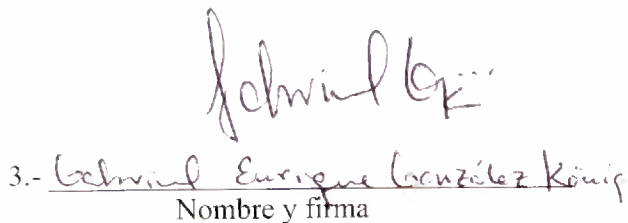 Gabriel GK
3.- Gabriel Enrique González König
Nombre y firma